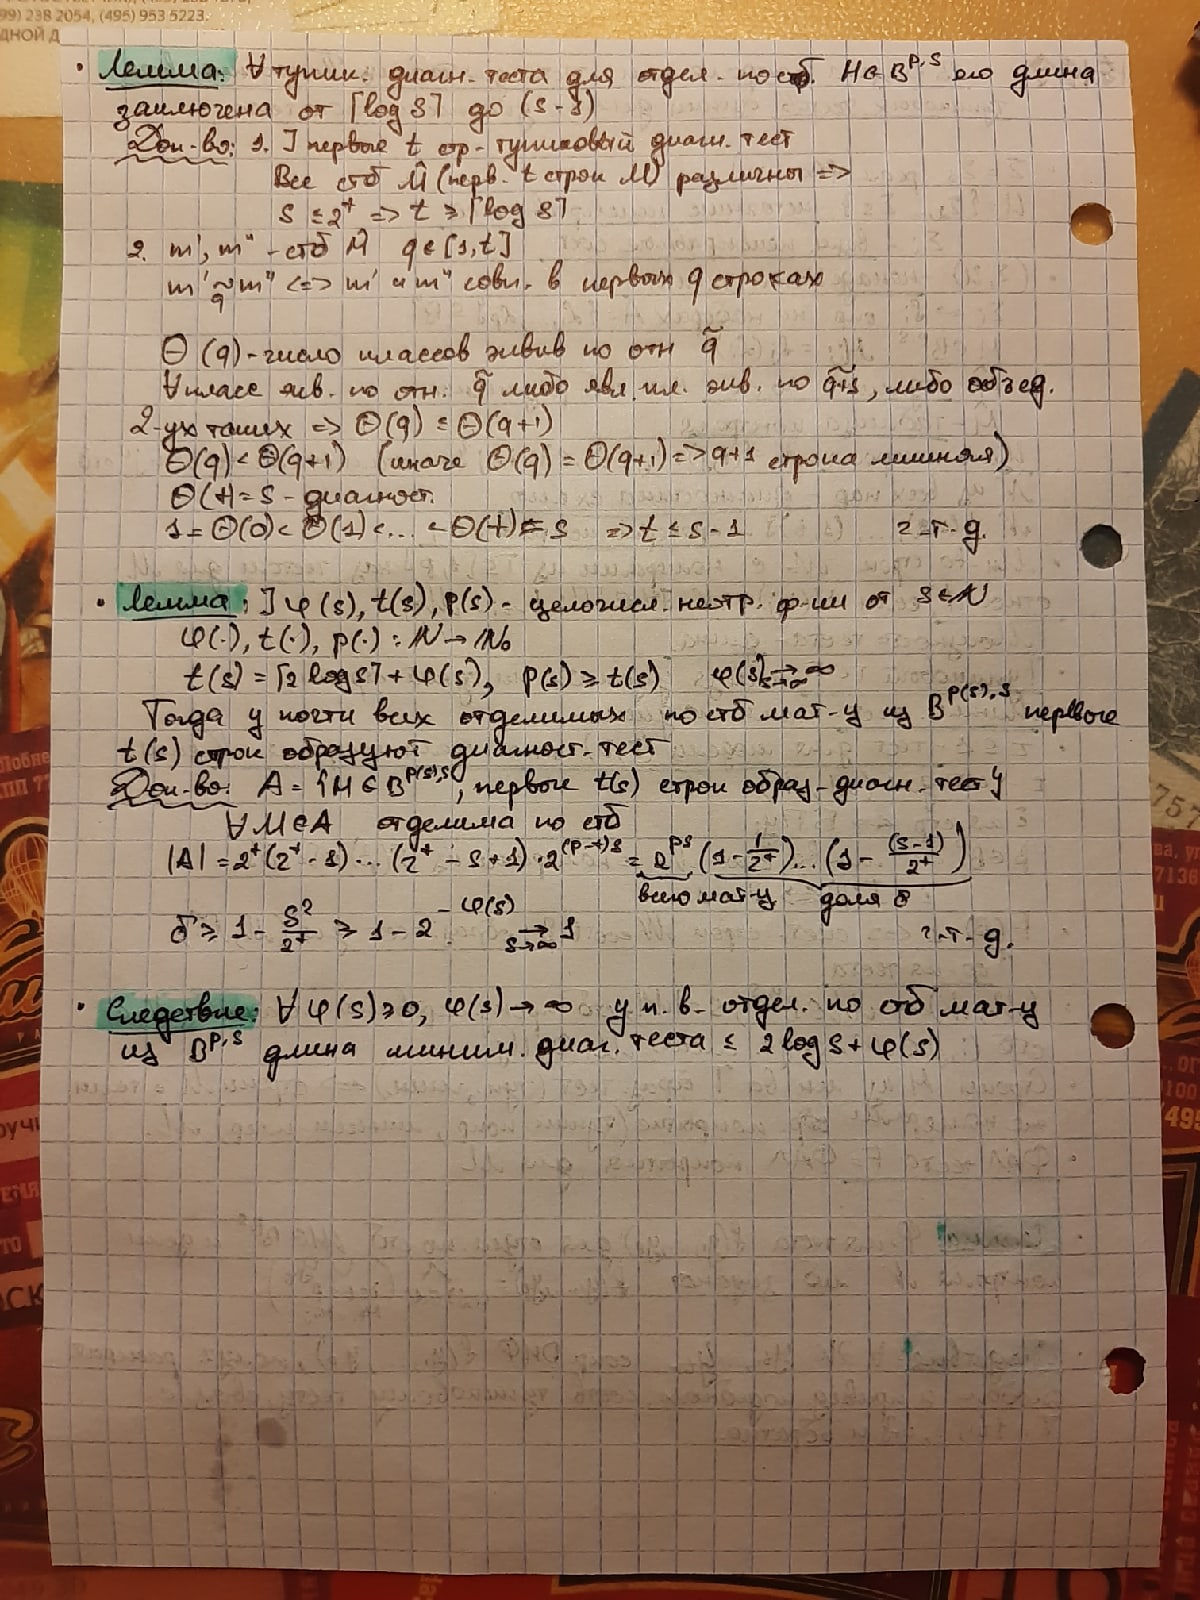 99) 238 2054, (495) 953 5223.
• Лемма: ∀ тупик. диагн. теста для отдел. по стб. M∈B^{p,s} его длина
заключена от ⌈log s⌉ до (s-1)
Док-во: 1. ] первые t стр - тупиковый диагн. тест
Все стб M̂ (перв. t строк M) различны =>
s ≤ 2^t => t ≥ ⌈log s⌉
2. m', m'' - стб M̂ q∈[1,t]
m' ~_q m'' <=> m' и m'' совп. в первых q строках
Θ(q) - число классов эквив по отн q̃
∀ класс экв. по отн. q̃ либо явл. кл. экв. по q̃+1, либо объед.
2-ух таких => Θ(q) ≤ Θ(q+1)
Θ(q) < Θ(q+1) (иначе Θ(q) = Θ(q+1) => q+1 строка лишняя)
Θ(t) = s - диагност.
1 = Θ(0) < Θ(1) < ... < Θ(t) = s => t ≤ s-1 ч-т-д.
• Лемма: ] φ(s), t(s), p(s) - целочисл. неотр. ф-ии от s∈N
φ(·), t(·), p(·) : N → N₀
t(s) = ⌈2 log s⌉ + φ(s), p(s) ≥ t(s) φ(s) →_{s→∞} ∞
Тогда у почти всех отделимых по стб мат-ц из B^{p(s),s} первые
t(s) строк образуют диагност. тест
Док-во: A = {M∈B^{p(s),s}, первые t(s) строк образ-диагн. тест}
∀ M∈A отделима по стб
|A| = 2^t (2^t - 1) ... (2^t - s + 1) · 2^{(p-t)s} = 2^{ps} (1 - 1/2^t) ... (1 - (s-1)/2^t)
всего мат-ц доля σ
σ ≥ 1 - s²/2^t ≥ 1 - 2^{-φ(s)} →_{s→∞} 1 ч-т-д.
• Следствие: ∀ φ(s) ≥ 0, φ(s) → ∞ у п. в. отдел. по стб мат-ц
из B^{p,s} длина миним. диаг. теста ≤ 2 log s + φ(s)